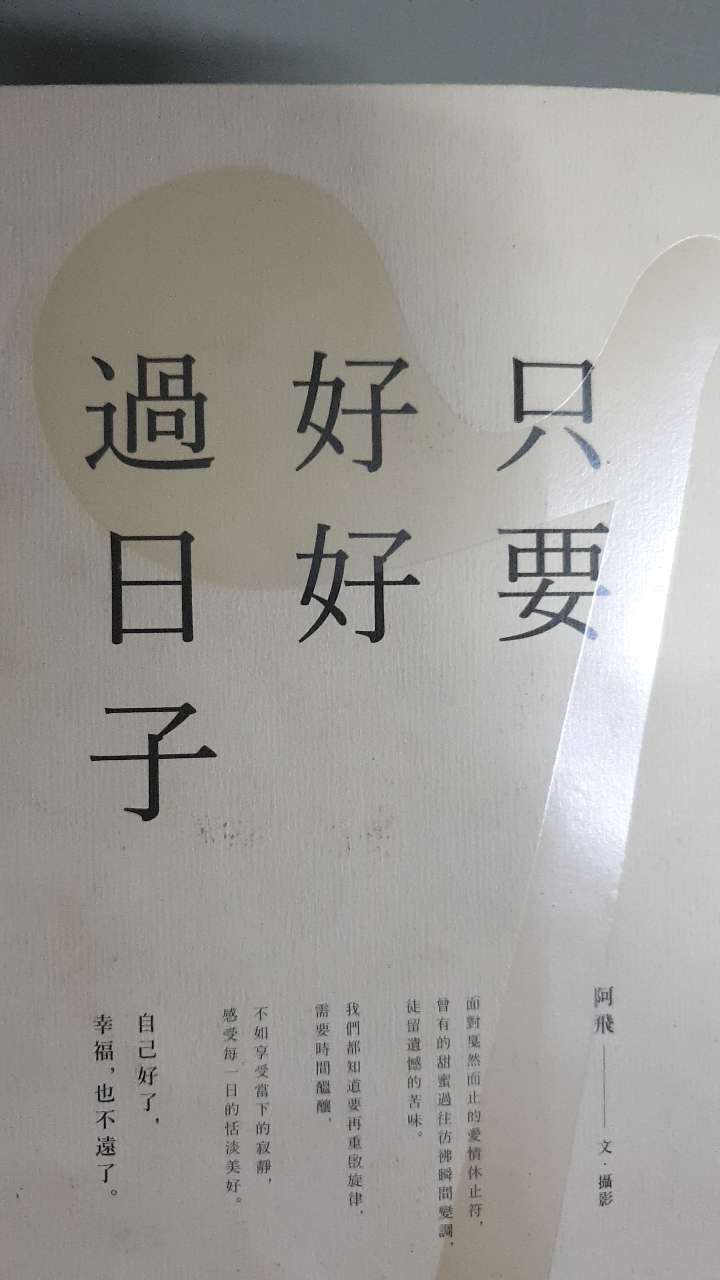 只要
好好
過日子
阿飛——文·攝影
面對戛然而止的愛情休止符，
曾有的甜蜜過往彷彿瞬間變調，
徒留遺憾的苦味。
我們都知道要再重啟旋律，
需要時間醞釀，
不如享受當下的寂靜，
感受每一日的恬淡美好。
自己好了，
幸福，也不遠了。